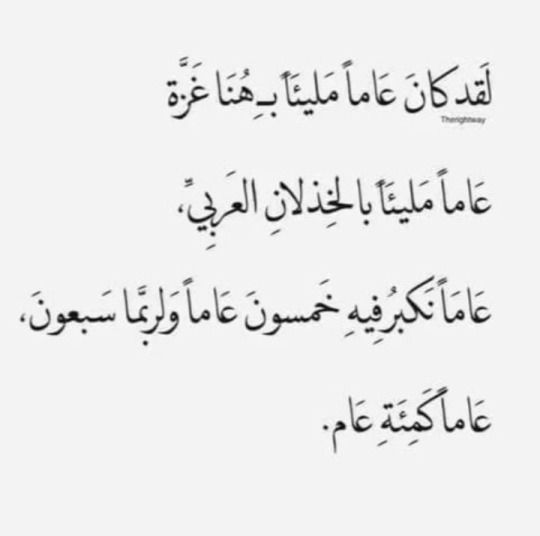 لَقد كانَ عَاماً مَليئَاً بـِ هُنَا غَزَّة
Therightway
عَاماً مَليئَاً بالخِذلانِ العَرَبِيِّ،
عَامَاً نَكبرُ فِيهِ خَمسونَ عَاماً وَلربَّما سَبعونَ،
عَاماً كَمِئَةِ عَام.